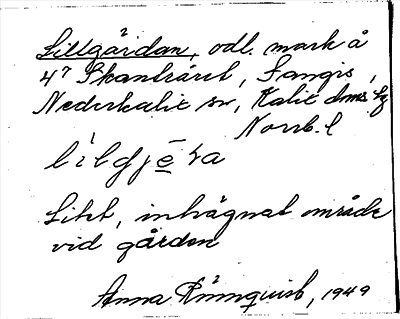 Lillgärdan, odl. mark å
4⁷ Skanträsk, Sangis,
Nederkalix sn, Kalix dms tg
Norrb. l
lìlgjéra
Litet, inhägnat område
vid gården
Anna Rönnquist, 1949